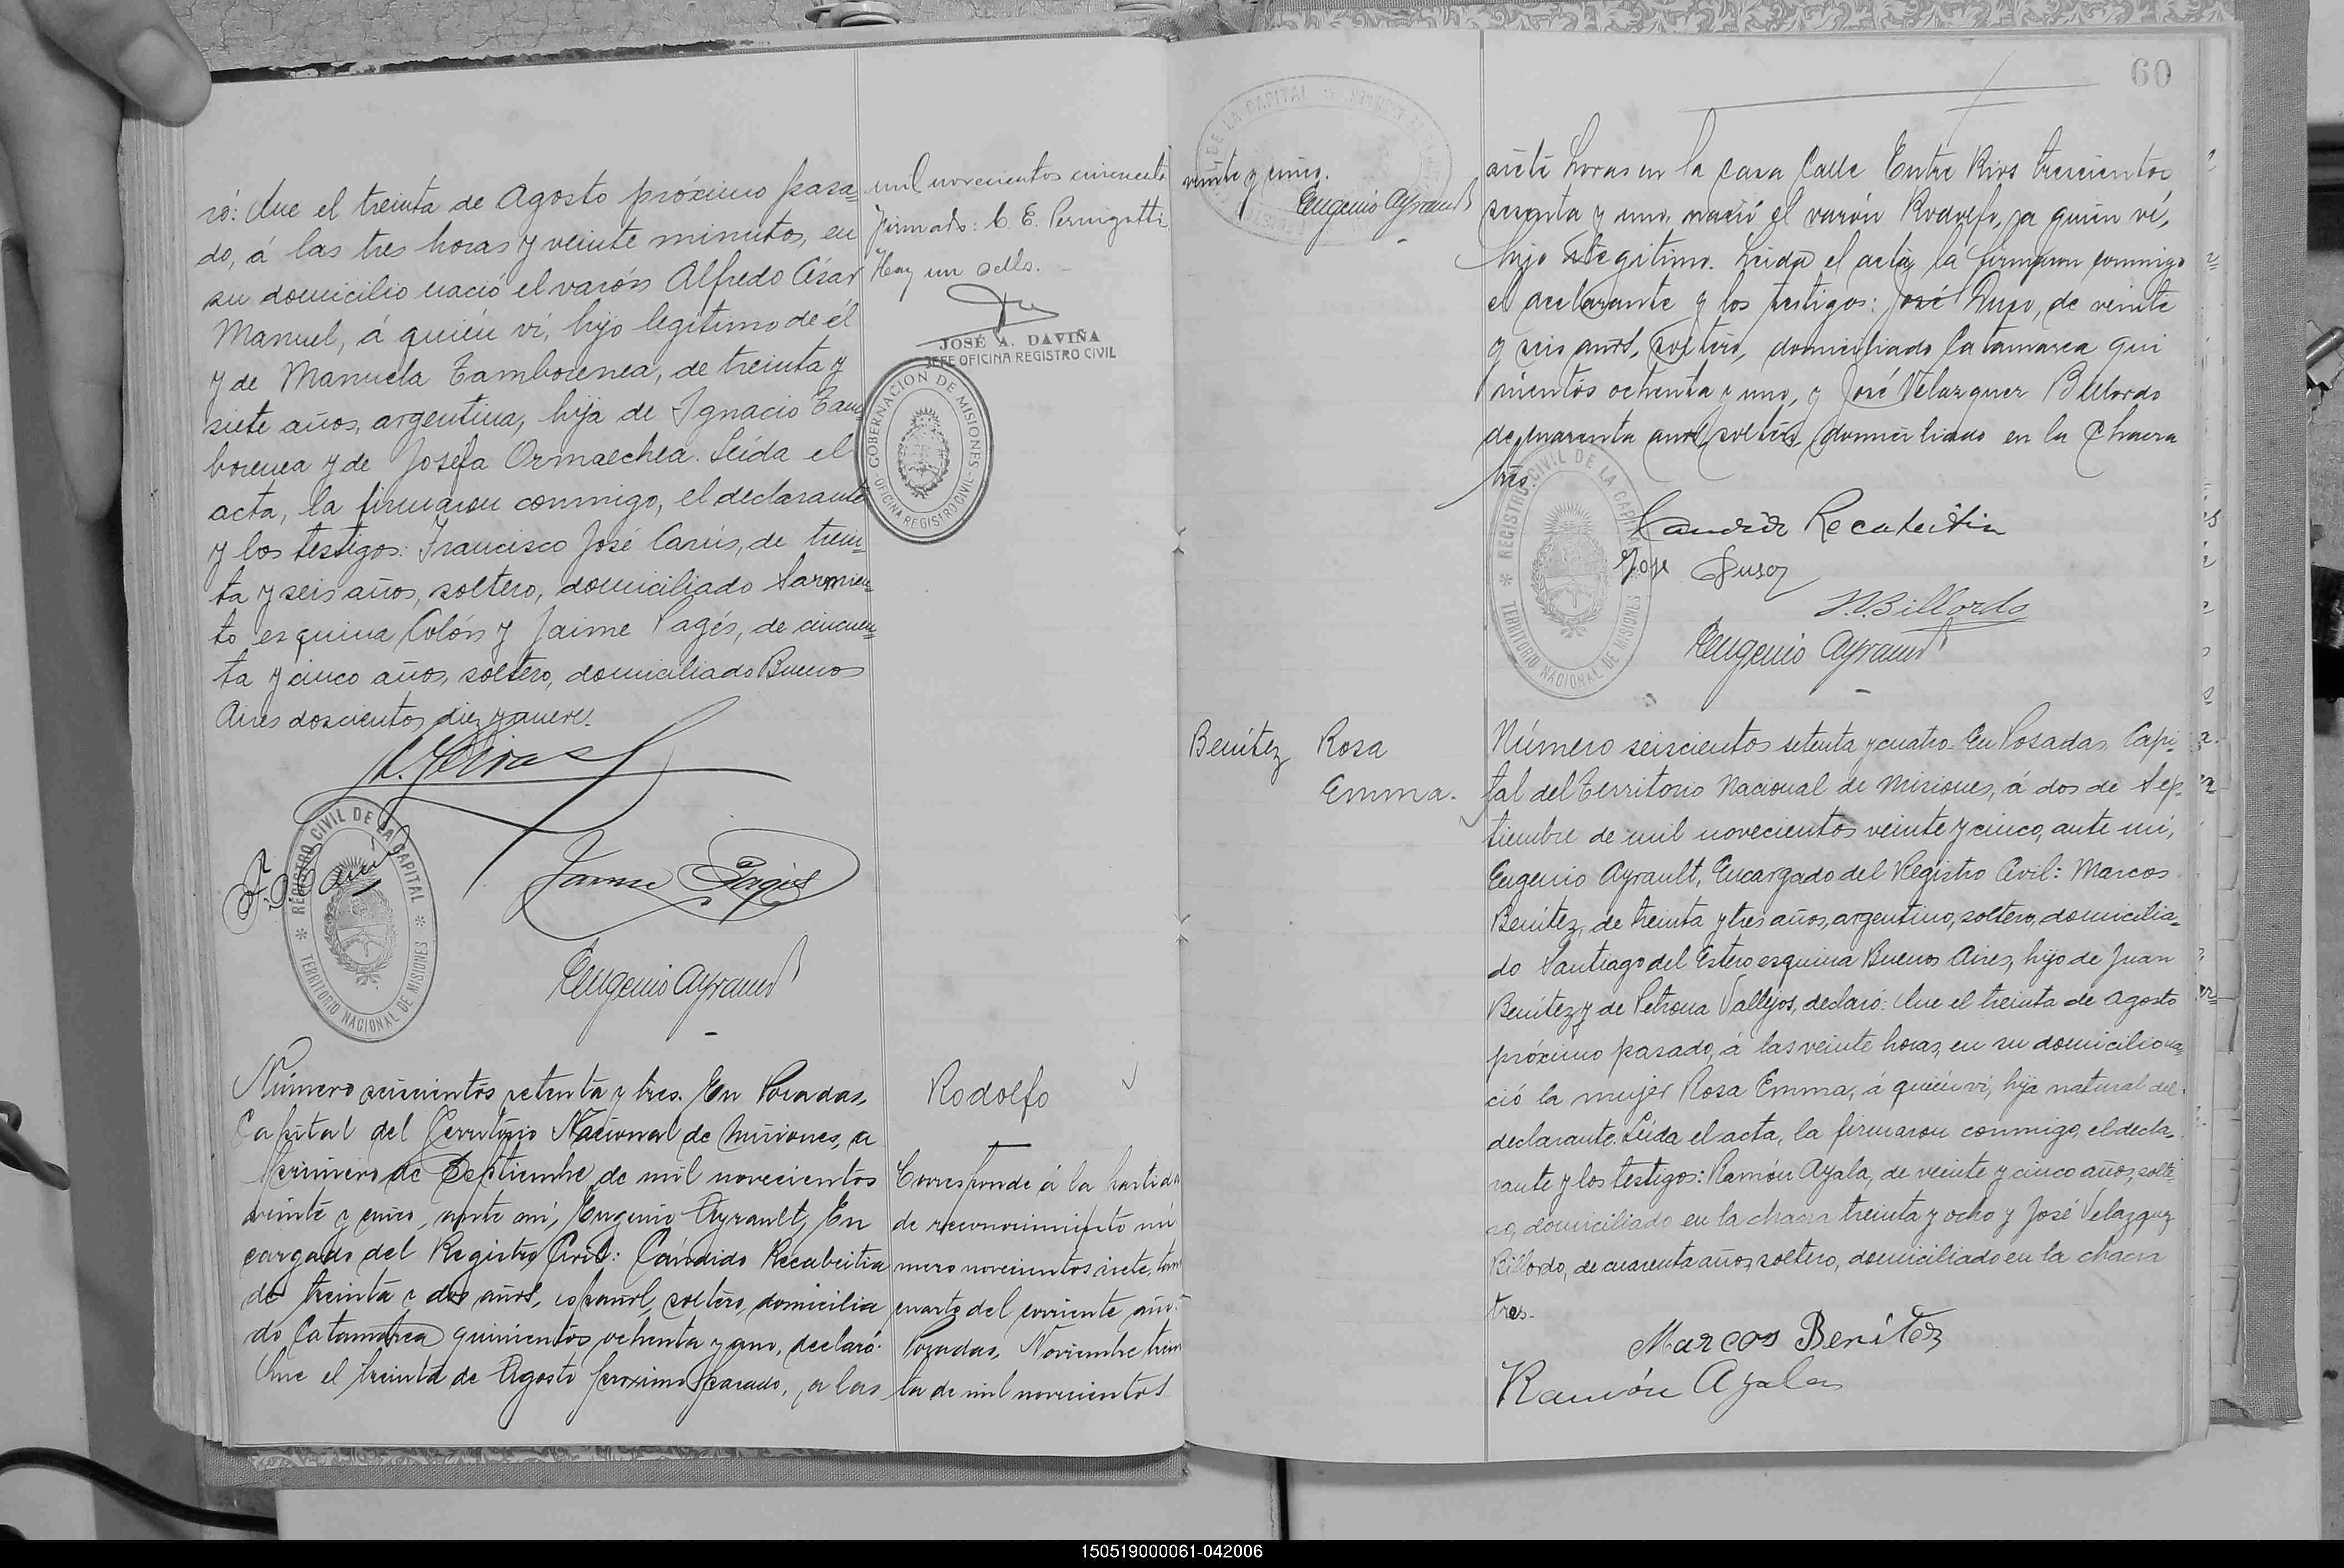 ró: Que el treinta de Agosto próximo pasa=
do, á las tres horas y veinte minutos, en
su domicilio nació el varón Alfredo César
Manuel, á quién ví, hijo legítimo de él
y de Manuela Tamborenea, de treinta y
siete años, argentina, hija de Ignacio Tam=
borenea y de Josefa Ormaechea. Leída el
acta, la firmaron conmigo, el declarante
y los testigos: Francisco José Carús, de trein=
ta y seis años, soltero, domiciliado Sarmien=
to esquina Colón y Jaime Pagés, de cincuen=
ta y cinco años, soltero, domiciliado Buenos
Aires doscientos diez y nueve.
Jaime Pagés
REGISTRO CIVIL DE LA CAPITAL
TERRITORIO NACIONAL DE MISIONES
Eugenio Ayrault
mil novecientos cincuenta
firmado: C. E. Pernigotti
Hay un sello.
JOSÉ A. DAVIÑA
JEFE OFICINA REGISTRO CIVIL
GOBERNACION DE MISIONES
OFICINA REGISTRO CIVIL
Número seiscientos setenta y tres. En Posadas,
Capital del Territorio Nacional de Misiones, a
primero de Septiembre de mil novecientos
veinte y cinco, ante mí, Eugenio Ayrault, En
cargado del Registro Civil: Cándido Recabeitia
de treinta y dos años, español, soltero, domicilia
do Catamarca quinientos ochenta y uno, declaró:
Que el treinta de Agosto próximo pasado, a las
Rodolfo
Corresponde á la partida
de reconocimiento nú
mero novecientos siete, tomo
cuarto del corriente año.
Posadas, Noviembre trein
ta de mil novecientos
veinte y cinco.
Eugenio Ayrault
60
siete horas en la casa Calle Entre Rios trescientos
sesenta y uno, nació el varón Rodolfo, a quien ví,
hijo ilegítimo. Leída el acta, la firmaron conmigo
el declarante y los testigos: José Duso, de veinte
y seis años, soltero, domiciliado Catamarca qui
nientos ochenta y uno, y José Velazquez Billordo
de cuarenta años, soltero, domiciliado en la Chacra
tres.
REGISTRO CIVIL DE LA CAPITAL
TERRITORIO NACIONAL DE MISIONES
Candido Recabeitia
Jose Duso
J.V. Billordo
Eugenio Ayrault
Benítez Rosa
Emma.
Número seiscientos setenta y cuatro. En Posadas, Capi=
tal del Territorio Nacional de Misiones, á dos de Sep=
tiembre de mil novecientos veinte y cinco, ante mí,
Eugenio Ayrault, Encargado del Registro Civil: Marcos
Benítez, de treinta y tres años, argentino, soltero, domicilia=
do Santiago del Estero esquina Buenos Aires, hijo de Juan
Benítez y de Petrona Vallejos, declaró: Que el treinta de Agosto
próximo pasado, á las veinte horas, en su domicilio na=
ció la mujer Rosa Emma, á quién ví, hija natural del
declarante. Leída el acta, la firmaron conmigo, el decla=
rante y los testigos: Ramón Ayala, de veinte y cinco años, solte=
ro, domiciliado en la chacra treinta y ocho y José Velazquez
Billordo, de cuarenta años, soltero, domiciliado en la chacra
tres.
Marcos Benítez
Ramón Ayala
150519000061-042006